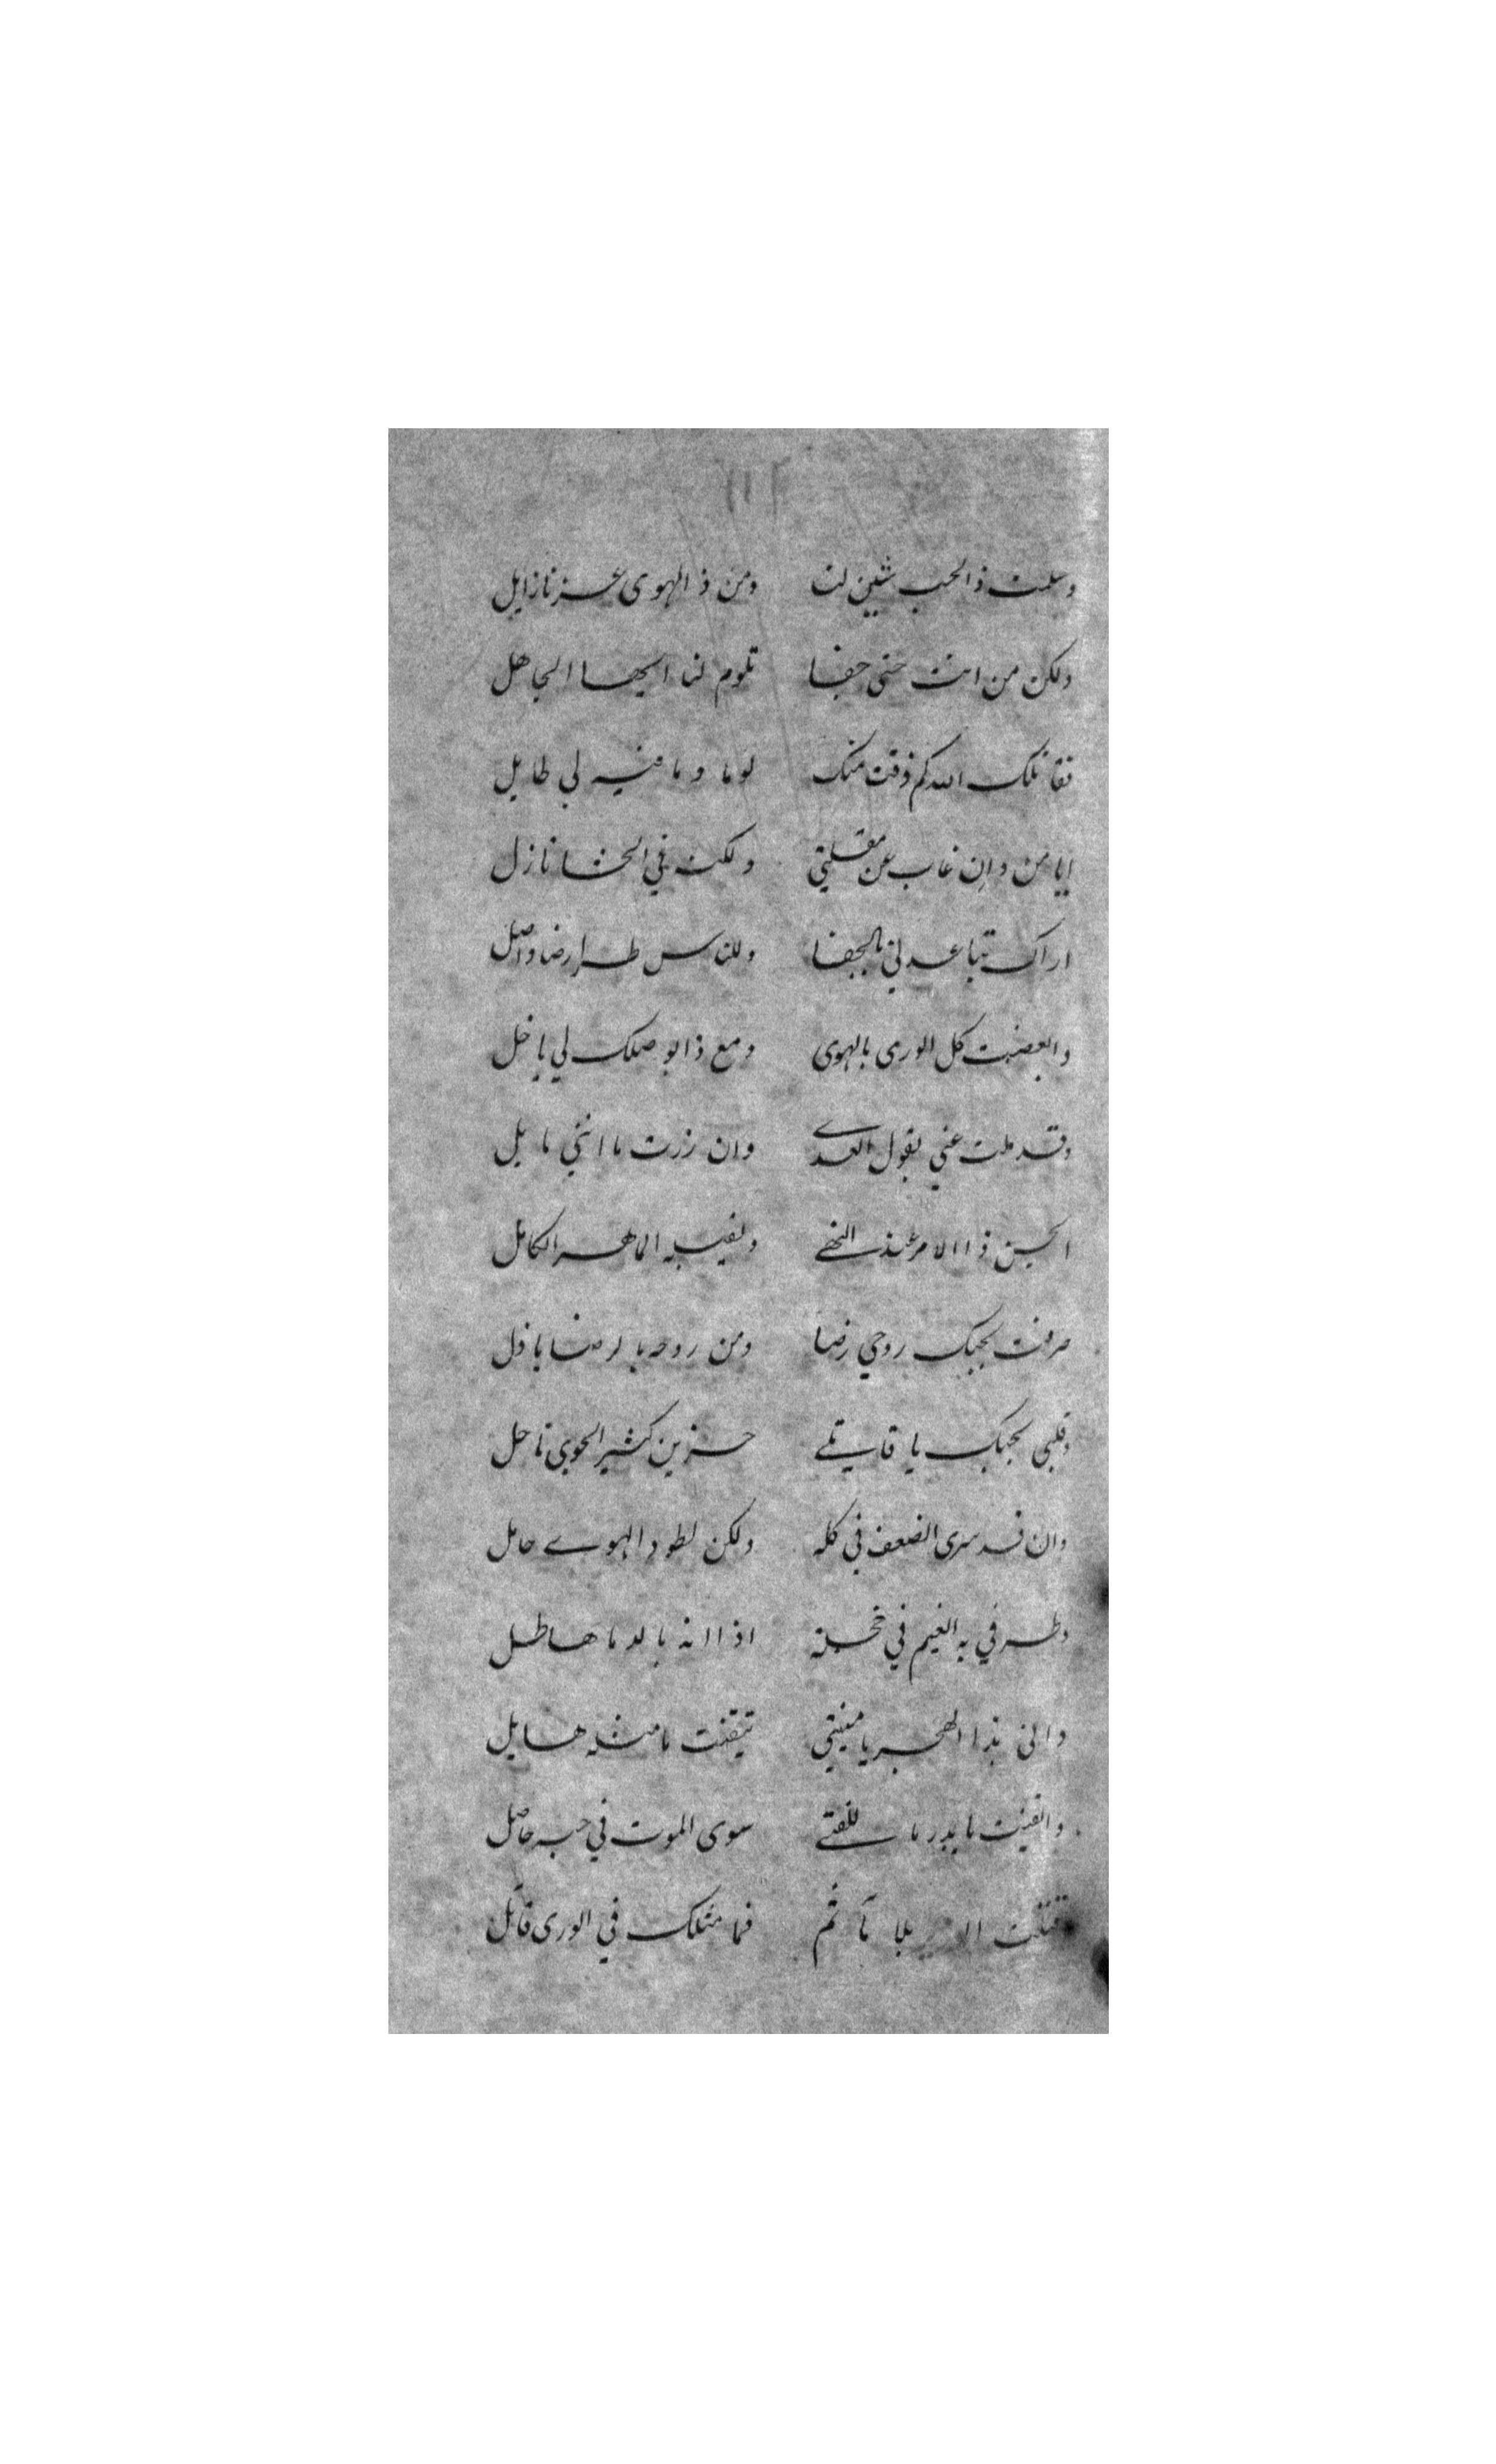 وسلمت ذ الحب شين لنا ومن ذ الهوى عزنا زايل
ولكن من انت حتى جفا تلوم لنا ايها الجاهل
فقاتلك الله كم ذقت منك لوما وما فيه لي طايل
ايا من وان غاب عن مقلتي ولكنه في الحشا نازل
اراك تباعدني بالجفا وللناس طرا رضا واصل
وابغضت كل الورى بالهوى ومع ذا بوصلك لي باخل
وقد ملت عني بقول العدى وان زرت ما انثني مايل
ايحسن ذا الامر عند النهى الماهر الكامل
صرفت بحبك روحي رضا ومن روحه بالرضا باذل
وقلبي بحبك يا قاتلي حزين كثير الجوى ناحل
وان قد سرى الضعف في كله ولكن لطود الهوى حامل
وطرفي به الغيم في خجلة اذا انه بالدما هاطل
واني بذا الهجر يا منيتي تيقنت ما مثله هايل
وايقنت ما يدر ما للفتى سوى الموت في حبه حاصل
قتلت بلا مأثم فما مثلك في الورى قاتل